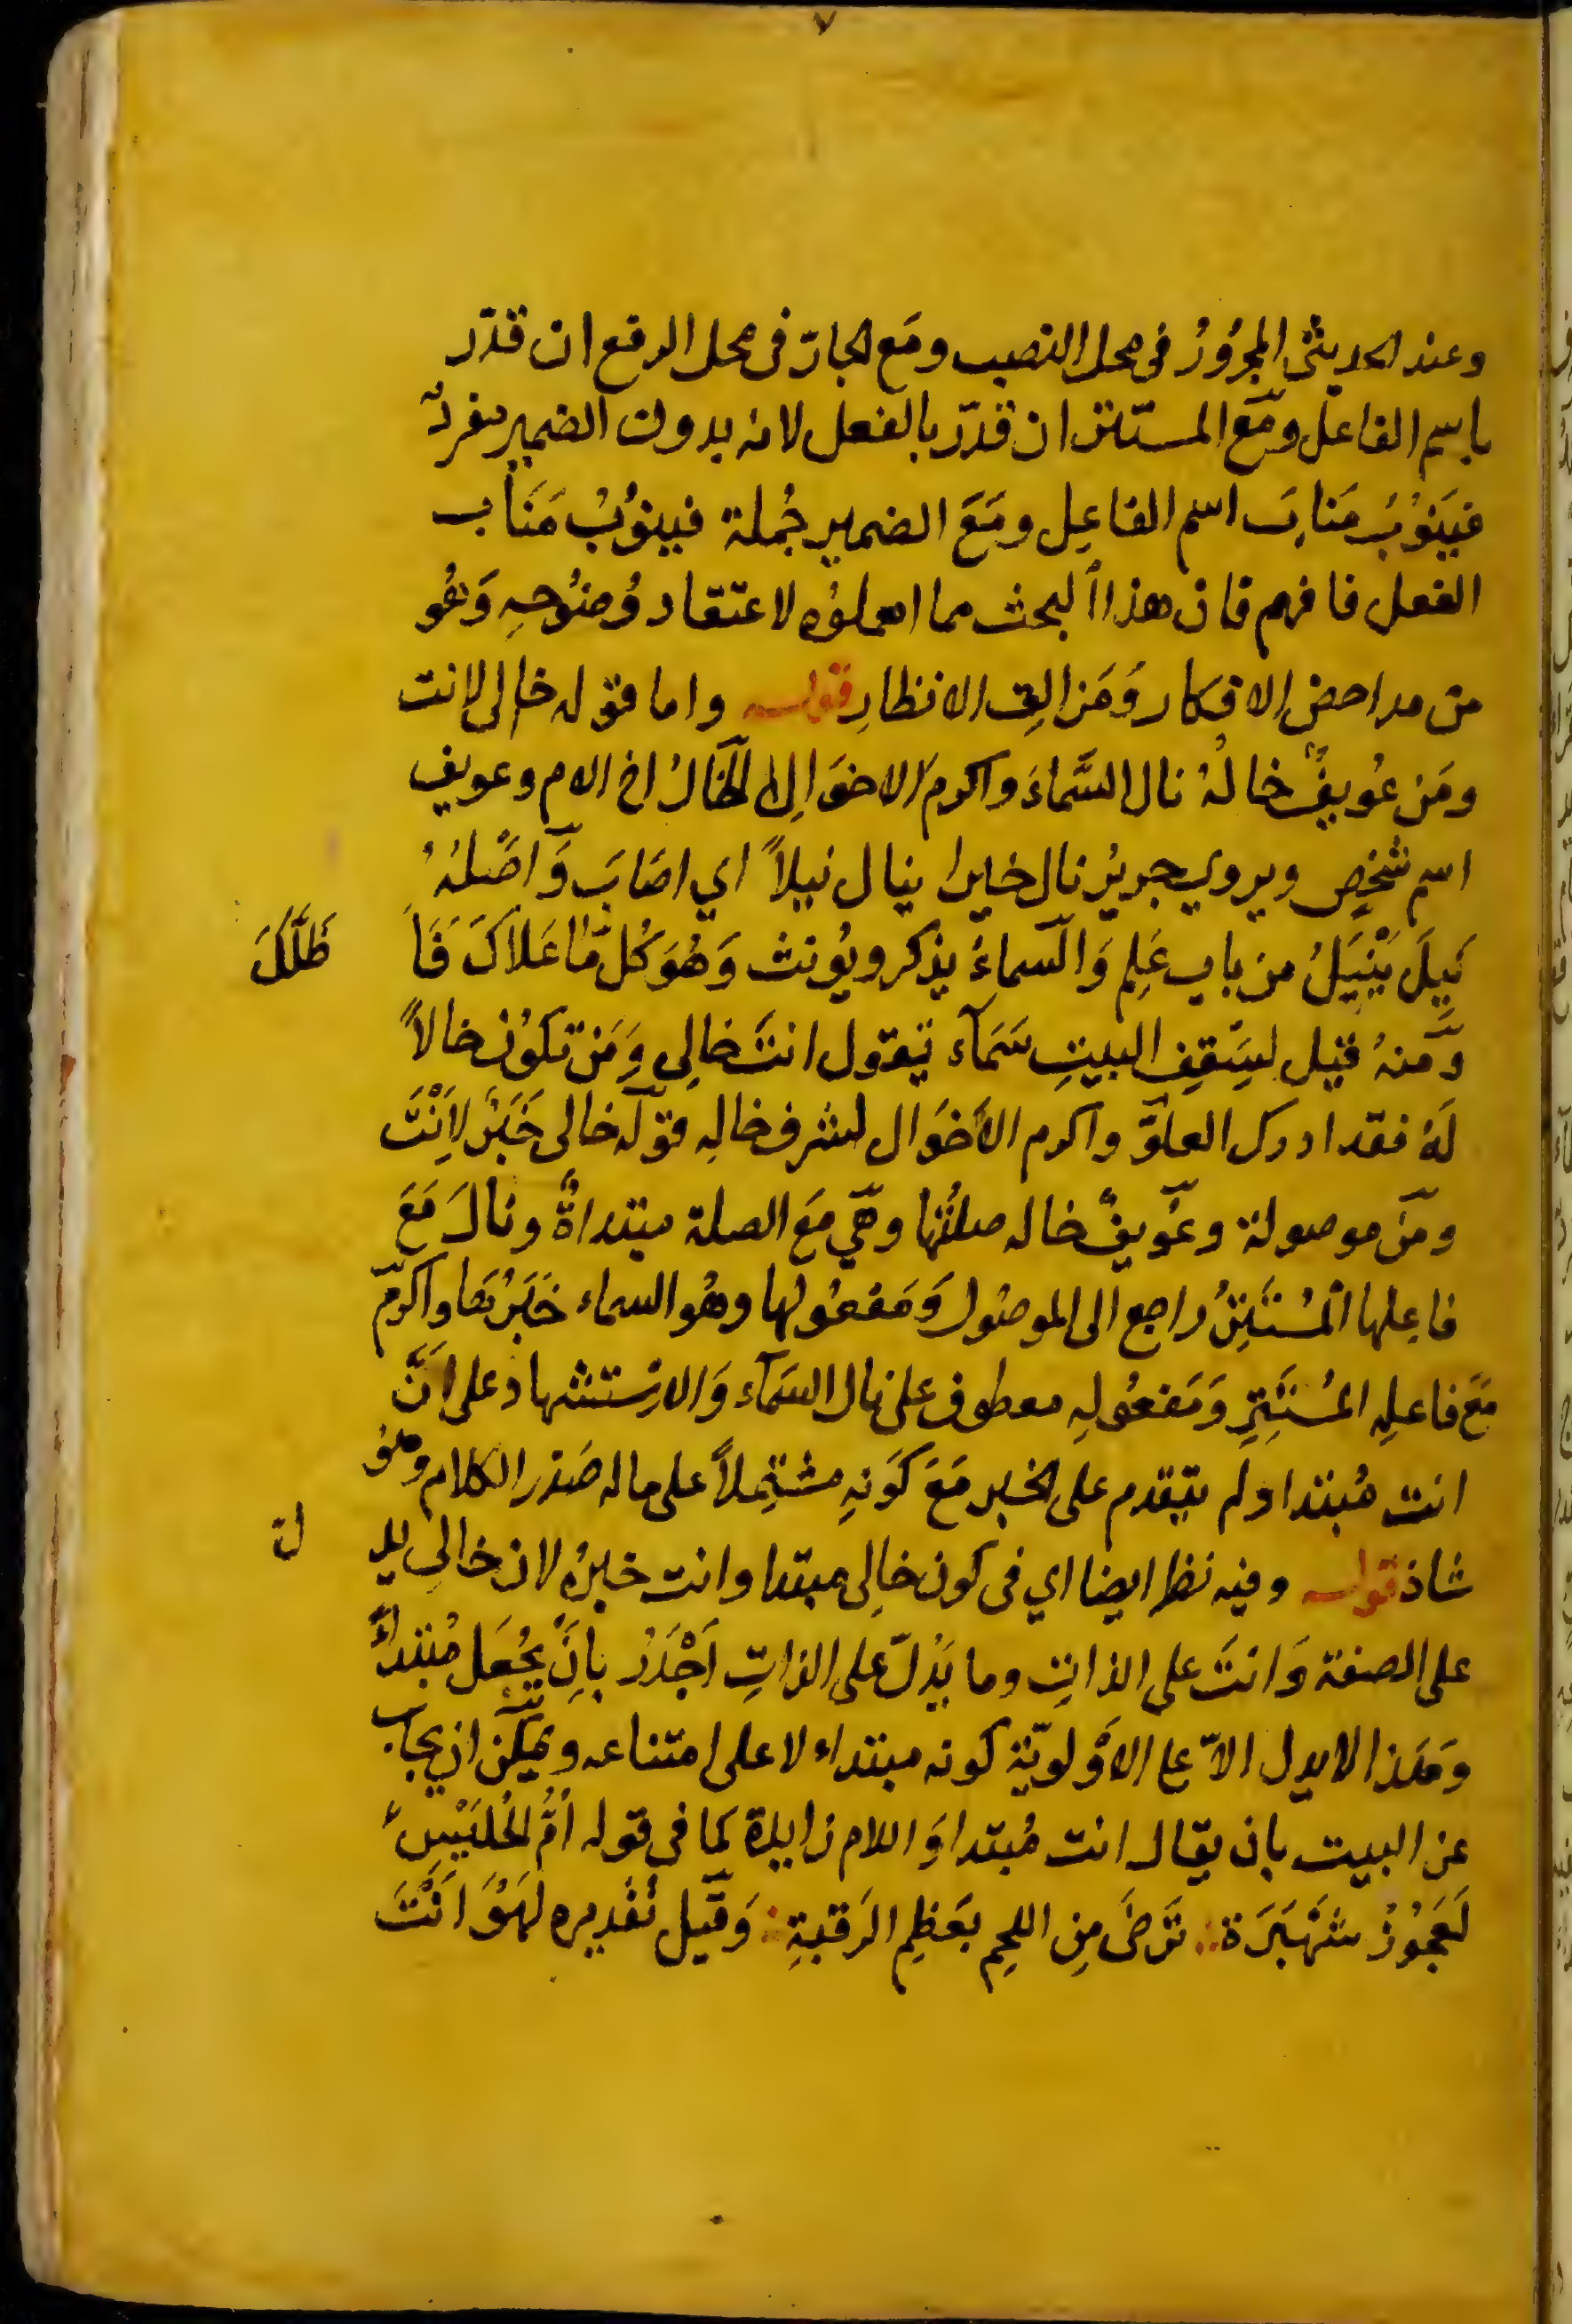 ٧
وعند الحديثي المجرُورُ في محل النصب ومَع الجارّ في محل الرفع ان قدّر
باسم الفاعل ومَع المستتر ان قدّر بالفعل لانه بدون الضمير مفردٌ
فيَنوُبُ مَنابَ اسم الفاعِل ومَعَ الضمير جُملة فينوُبُ مَنَاب
الفعل فافهم فان هذا البحث مما اهملوُه لاعتقاد وُضوُحِهِ وَهُو
من مداحض الافكار وَمَزالِق الانظارِ قوله واما قوله خالى لانت
ومَن عُويفٌ خالُهُ نال السَّماءَ واكرم الاخوَالا الخَالُ اخ الام وعويف
اسم شخصٍ ويروي جريرٌ نال خيرا ينال نيلاً اي اصَابَ وَاصْلُهُ
نَيِلَ يَنْيَلُ من باب عَلِم وَالسماءُ يذكر ويُونث وَهُوَ كُل مَا عَلاكَ فَاَ ظَلَّكَ
وَمنهُ قيل لِسَقفِ البيتِ سَمَآء تيقول انتَ خالِي وَمَن تكوُن خالاً
لَهُ فقد ادرك العلوّ واكرم الاَخوَال لشرف خالِهِ قوله خالى خَبَرٌ لاَِنْتَ
ومَن موصولة وعُويفٌ خاله صلتُها وهّي مَعَ الصلة مبتداةٌ ونالَ مَعَ
فاعِلها المُستَتِرُ راجع الى الموصُول وَمَفعوُلها وهُو السماء خَبَرُهَا واكرمَ
مَعَ فاعلِهِ المُستَتِرِ وَمَفعُولِهِ معطوف على نال السَمآء وَالاِستشهاد على اَنَّ
انت مُبتدا ولم يتقدم على الخبر مَعَ كَونِهِ مشتمِلاً على ماله صَدر الكلام وهُو
شاذ قوله وفيه نظر ايضا اي في كون خالِى مبتدا وانت خبرُهُ لان خالِى يد ل
على الصفة وَانتَ على الذاتِ وما يَدُلّ على الذاتِ اَجْدَرُ بِاَنْ يُجعَل مُبتداءً
وَهَذا لا يدل الاّ على الاَولويّة كونه مبتداء لا على امتناعه ويمكن ان يجاب
عن البيت بان يقال انت مُبتدا وَاللام زايدة كما في قوله اُمُّ الحُلَيْسِ
لَعَجُوُزٌ شَهْبَرَة تَرضَى مِن اللحِم بعَظمِ الرَقبةِ وَقيل تقديره لهَوَ اَنْتَ